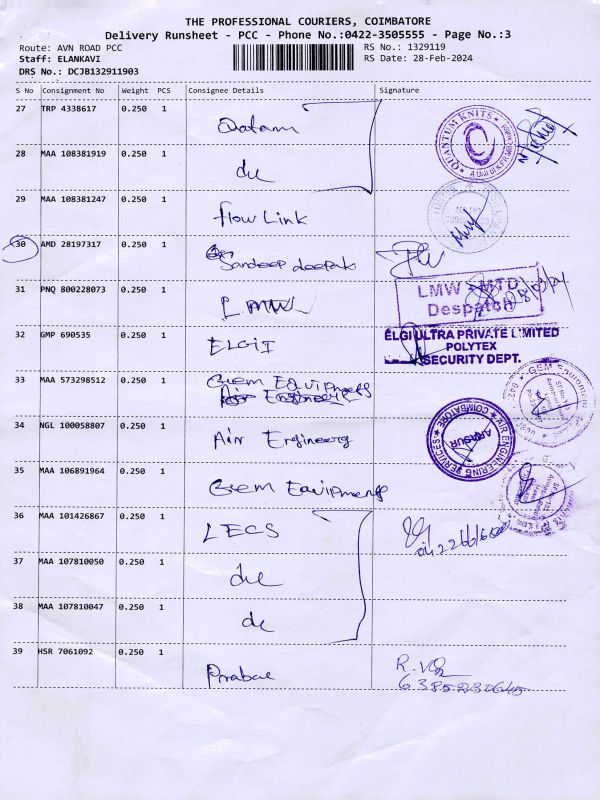 THE PROFESSIONAL COURIERS, COIMBATORE
Delivery Runsheet - PCC - Phone No.:0422-3505555 - Page No.:3
Route: AVN ROAD PCC
RS No.: 1329119
Staff: ELANKAVI
RS Date: 28-Feb-2024
DRS No.: DCJB132911903
S No Consignment No Weight PCS Consignee Details Signature
27 TRP 4338617 0.250 1
QUANTUM KNITS
28 MAA 108381919 0.250 1
29 MAA 108381247 0.250 1
flow Link
30 AMD 28197317 0.250 1
Sandeep deepak
31 PNQ 800228073 0.250 1
LMW - MTD
Despatch
32 GMP 690535 0.250 1
ELGI
ELGI ULTRA PRIVATE LIMITED
POLYTEX
SECURITY DEPT.
33 MAA 573298512 0.250 1
Gem Equipments
34 NGL 100058807 0.250 1
Air Engineerg
AIR ENGINEERING SERVICES
COIMBATORE
ARASUR
35 MAA 106891964 0.250 1
Gem Equipments
36 MAA 101426867 0.250 1
LECS
37 MAA 107810050 0.250 1
38 MAA 107810047 0.250 1
39 HSR 7061092 0.250 1